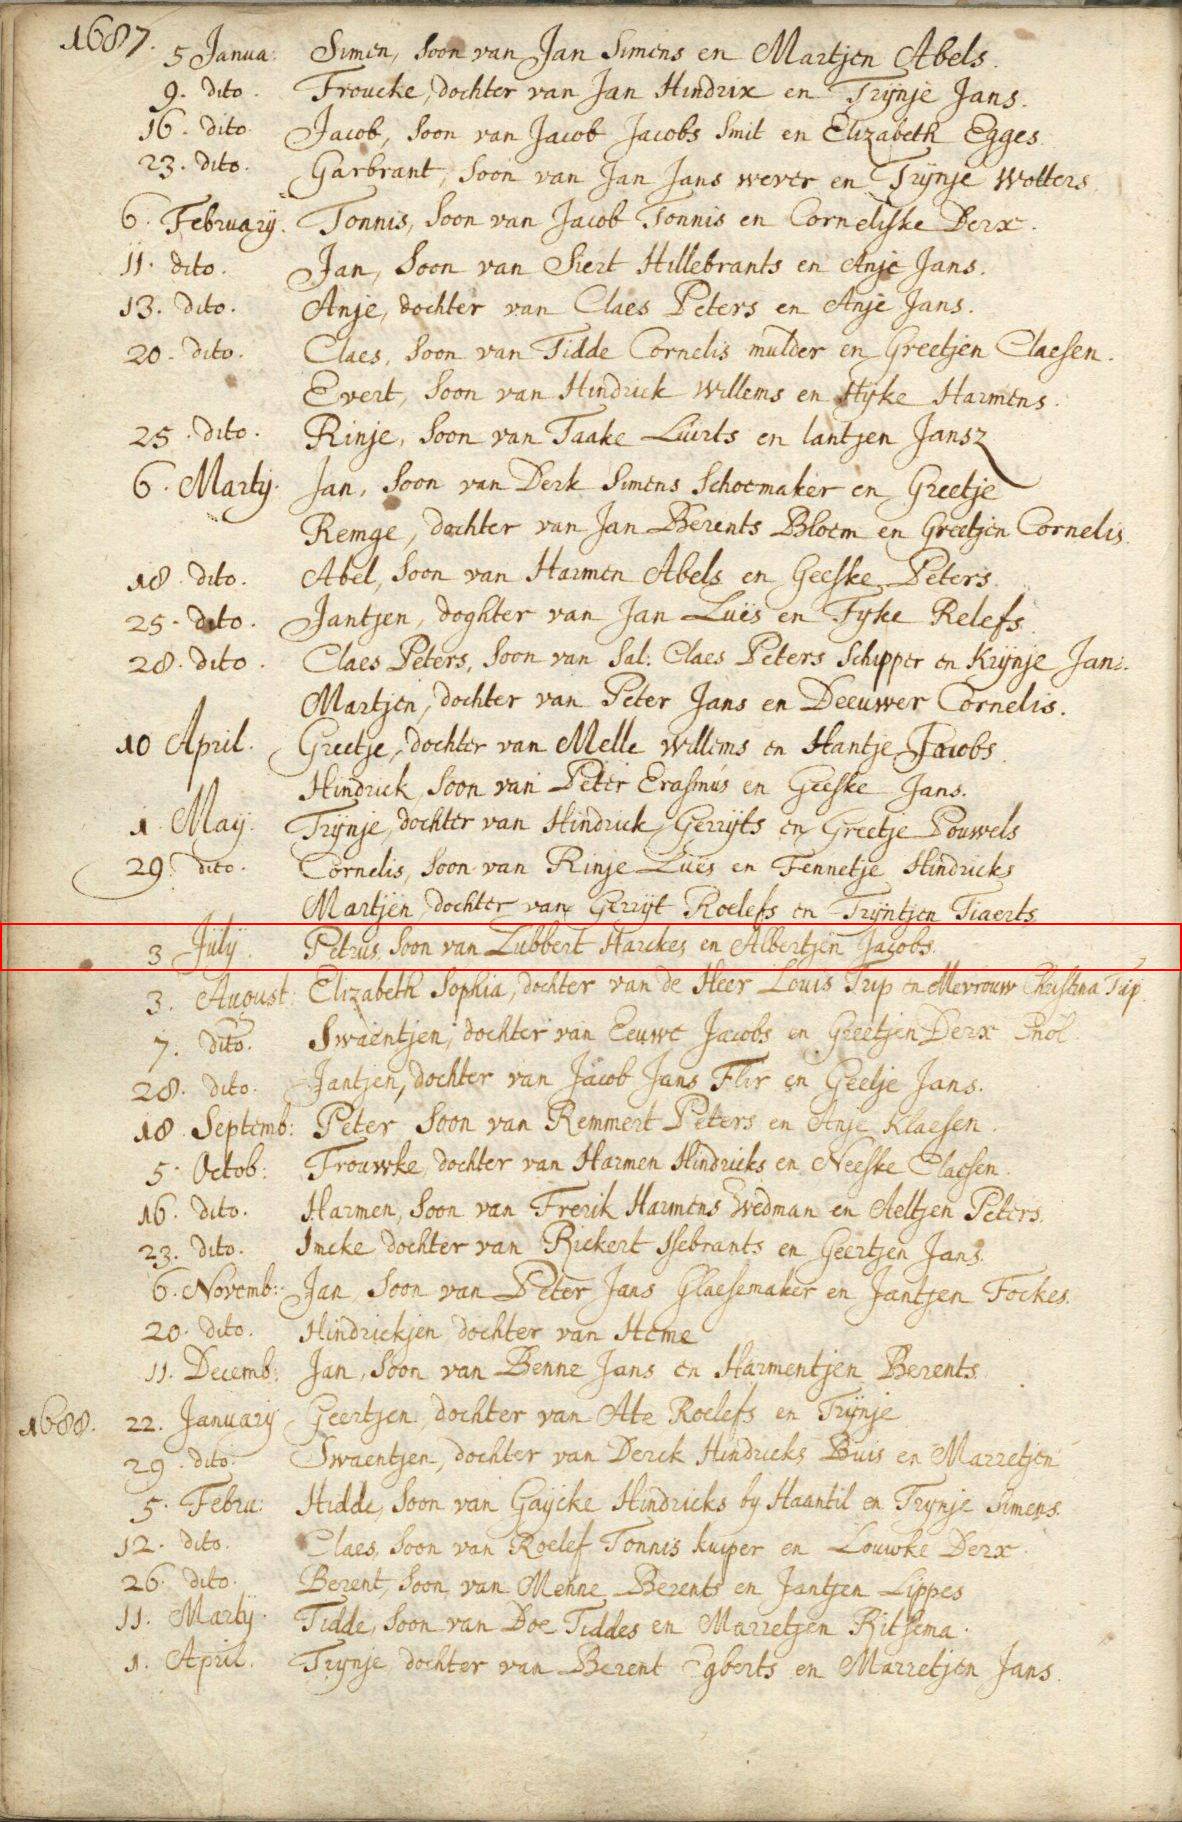 1687.
5 Janua: Simen, Soon van Jan Simens en Martjen Abels.
9. dito. Froucke, dochter van Jan Hindrix en Trijnje Jans.
16. dito. Jacob, Soon van Jacob Jacobs Smit en Elizabeth Egges
23. dito. Garbrant, Soon van Jan Jans wever en Trijnje Wolters
6. Februarij. Tonnis, Soon van Jacob Tonnis en Corneliske Derx.
11. dito. Jan, Soon van Siert Hillebrants en Anje Jans.
13. dito. Anje, dochter van Claes Peters en Anje Jans.
20. dito. Claes, Soon van Tidde Cornelis mulder en Greetjen Claesen.
Evert, Soon van Hindrick Willems en Hijke Harmens.
25. dito. Rinje, Soon van Taake Luirts en lantjen Jansz
6. Martij. Jan, Soon van Derk Simens Schoemaker en Greetje
Remge, dochter van Jan Berents Bloem en Greetjen Cornelis.
18. dito. Abel, Soon van Harmen Abels en Geeske Peters.
25. dito. Jantjen, doghter van Jan Luës en Fyke Relefs
28. dito. Claes Peters, Soon van Sal: Claes Peters Schipper en Krijnje Jans.
Martjen, dochter van Peter Jans en Deeuwer Cornelis.
10 April. Greetje, dochter van Melle Willems en Hantje Jacobs
Hindrick, Soon van Peter Erasmus en Geeske Jans.
1. Maij. Trijnje, dochter van Hindrick Gerrijts en Greetje Pouwels
29. dito. Cornelis, Soon van Rinje Luës en Fennetje Hindricks
Martjen, dochter van Gerrijt Roelefs en Trijntjen Tiaerts
3 Julij. Petrus, Soon van Lubbert Harckes en Albertjen Jacobs.
3. August: Elizabeth Sophia, dochter van de Heer Louis Trip en Mevrouw Christina Trip.
7. dito. Swaentjen, dochter van Eeuwe Jacobs en Geertjen Derx Phol.
28. dito. Jantjen, dochter van Jacob Jans Flir en Geetje Jans.
18. Septemb: Peter Soon van Remmert Peters en Anje Klaesen.
5. Octob: Trouwke, dochter van Harmen Hindricks en Neeske Claesen.
16. dito. Harmen, Soon van Frerik Harmens Wedman en Aeltjen Peters.
23. dito. Imeke dochter van Rickert Isebrants en Geertjen Jans.
6. Novemb: Jan, Soon van Peter Jans Glaesemaker en Jantjen Fockes.
20. dito. Hindrickjen dochter van Heme
11. Decemb: Jan, Soon van Benne Jans en Harmentjen Berents.
1688. 22. Januarij Geertjen, dochter van Ate Roelefs en Trijnje
29. dito. Swaentjen, dochter van Derck Hindricks Buis en Marretjen
5. Febru: Hidde, Soon van Gaycke Hindricks by Haantil en Trynje Simens.
12. dito. Claes, Soon van Roelef Tonnis kuiper en Louwke Derx.
26. dito. Berent, Soon van Menne Berents en Jantjen Lippes
11. Martij. Tidde, Soon van Doe Tiddes en Marretjen Ritsema.
1. April. Trijnje, dochter van Berent Egberts en Marretjen Jans.